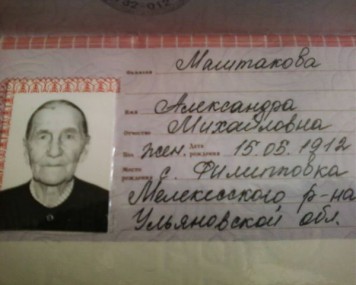 32-012
Фамилия Маштакова
Имя Александра
Отчество Михайловна
Пол жен. Дата рождения 15.05.1912
Место рождения с. Филипповка
Мелекесского р-на
Ульяновской обл.